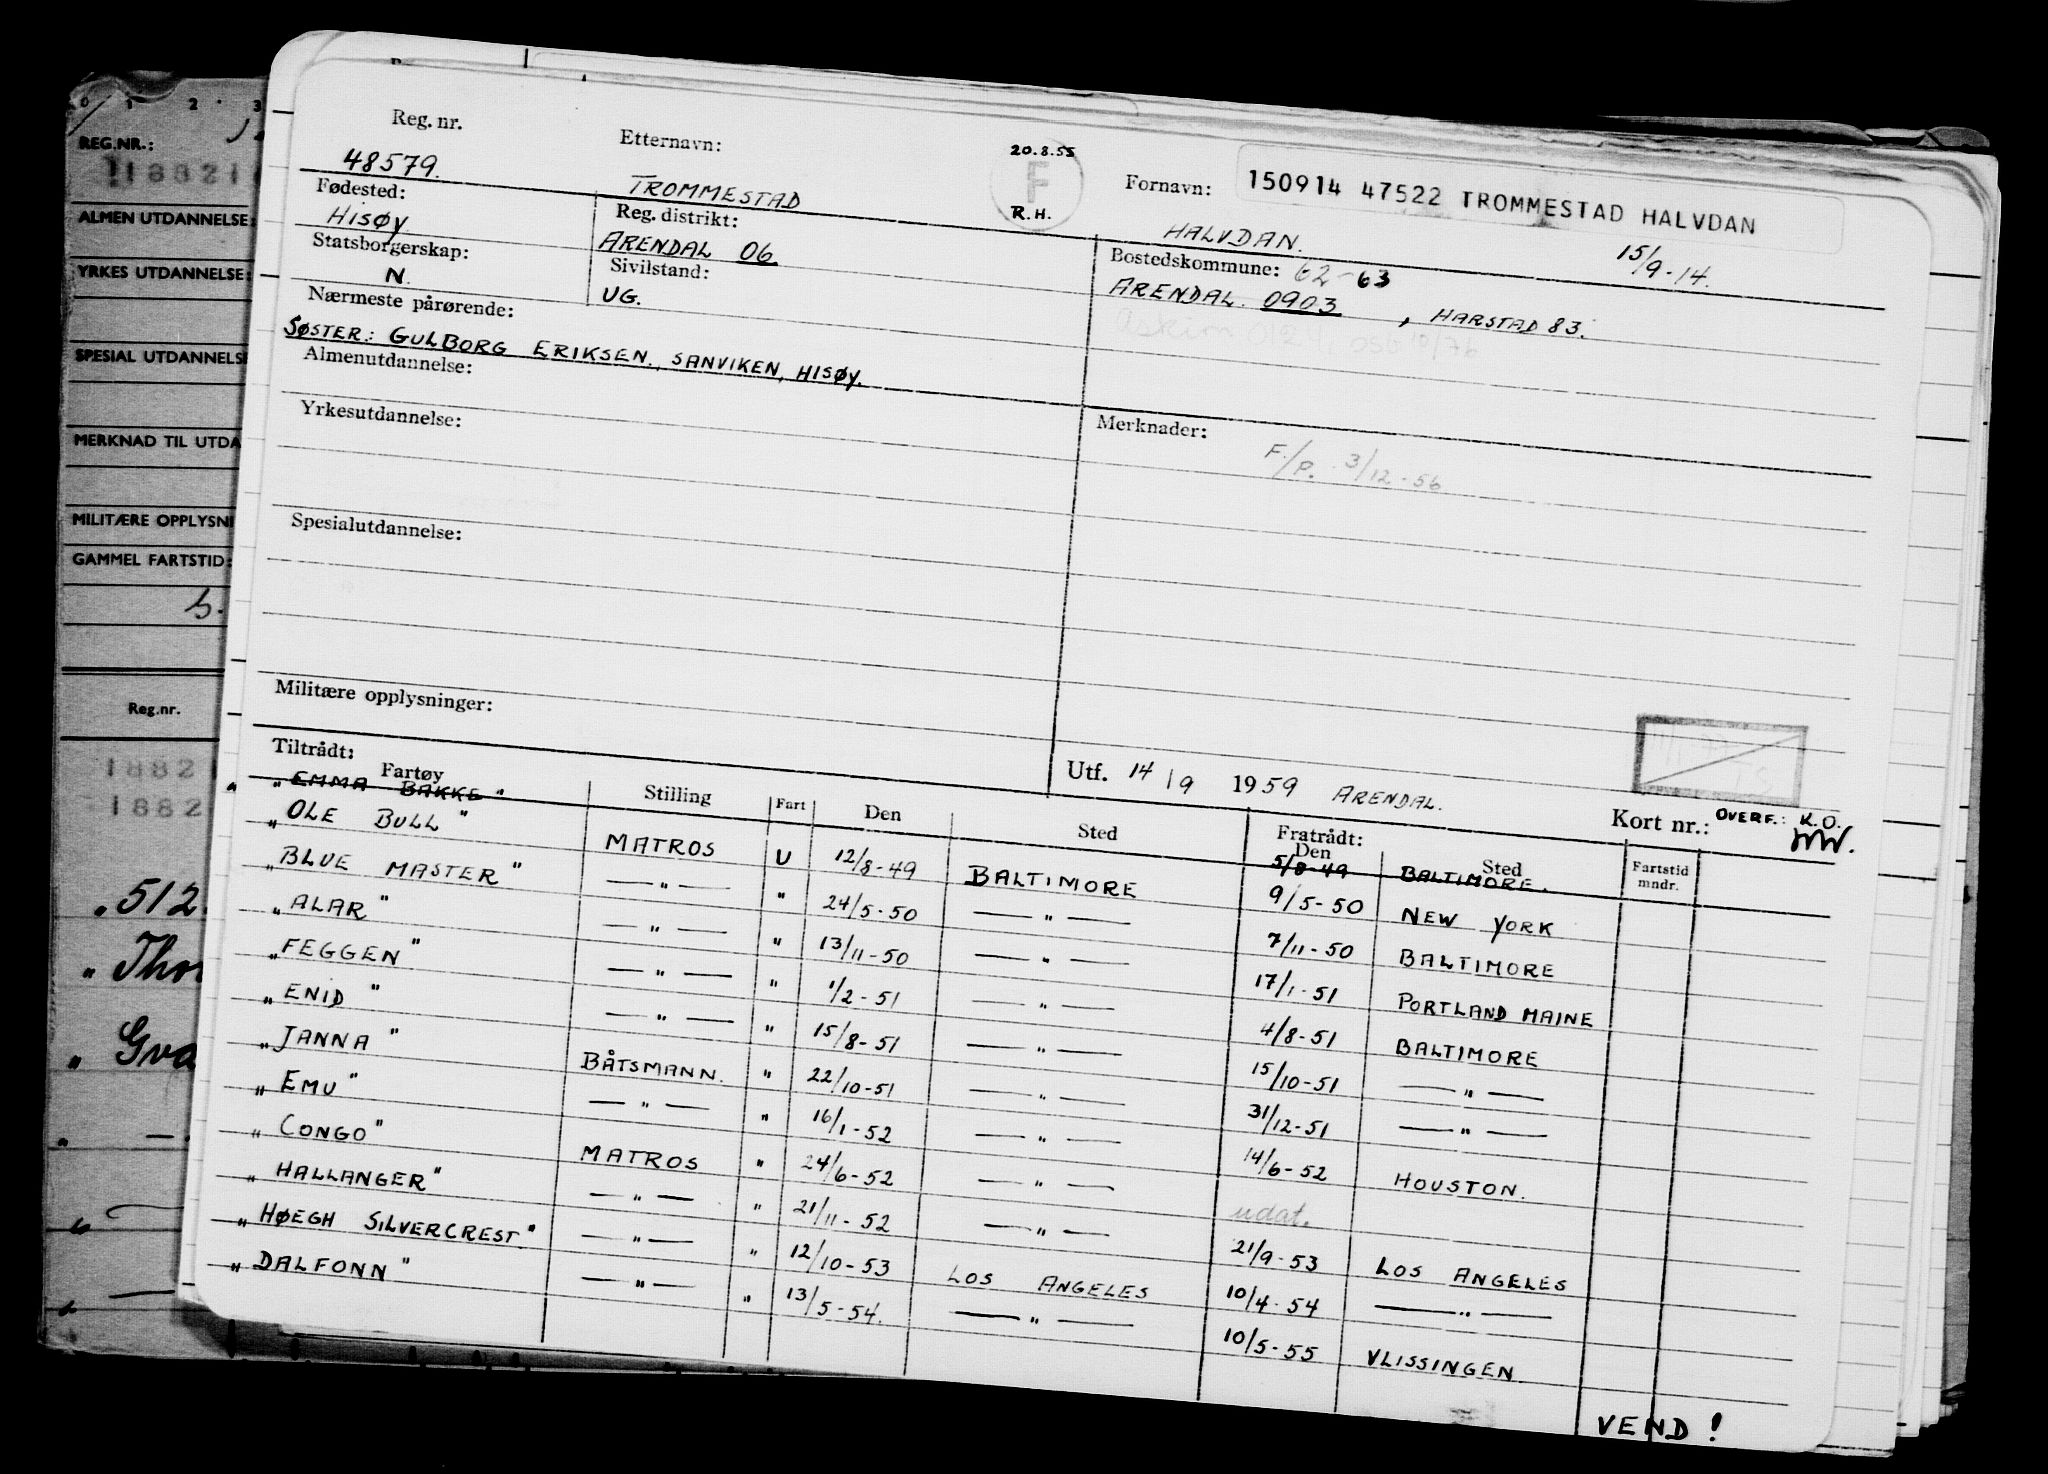 0 1 2 3
REG.NR.:
ALMEN UTDANNELSE:
YRKES UTDANNELSE:
SPESIAL UTDANNELSE
MERKNAD TIL UTDA
MILITÆRE OPPLYSNI
GAMMEL FARTSTID:
Reg.nr.
1882
1882
„512
„Tho
„Gva
Reg. nr. Etternavn: 20.8.55 Fornavn: 150914 47522 TROMMESTAD HALVDAN
48579. TROMMESTAD F R.H. HALVDAN. 15/9-14.
Fødested: Reg. distrikt: Bostedskommune: 62-63
HISØY ARENDAL 06 ARENDAL. 0903, HARSTAD 83.
Statsborgerskap: Sivilstand:
N. UG.
Nærmeste pårørende:
SØSTER: GULBORG ERIKSEN., SANVIKEN, HISØY.
Almenutdannelse: Merknader:
F./P. 3/12-56
Yrkesutdannelse:
Spesialutdannelse:
Militære opplysninger:
Utf. 14/9 1959 ARENDAL.
Kort nr.: OVERF.: K.O.
Tiltrådt: Fratrådt:
Fartøy Stilling Fart Den Sted Den Sted Fartstid mndr.
„EMMA BAKKE" 5/8-49 BALTIMORE.
„OLE BULL" MATROS U 12/8-49 BALTIMORE 9/5-50 NEW YORK
„BLUE MASTER" —"— " 24/5-50 —"— 7/11-50 BALTIMORE
„ALAR" —"— " 13/11-50 —"— 17/1-51 PORTLAND MAINE
„FEGGEN" —"— " 1/2-51 —"— 4/8-51 BALTIMORE
„ENID" —"— " 15/8-51 —"— 15/10-51 —"—
„JANNA" BÅTSMANN. " 22/10-51 —"— 31/12-51 —"—
„EMU" —"— " 16/1-52 —"— 14/6-52 HOUSTON.
„CONGO" MATROS " 24/6-52 —"— udat.
„HALLANGER" —"— " 21/11-52 —"— 21/9-53 LOS ANGELES
„HØEGH SILVERCREST." —"— " 12/10-53 LOS ANGELES 10/4-54 —"—
„DALFONN" —"— " 13/5-54. —"— 10/5-55 VLISSINGEN.
VEND!